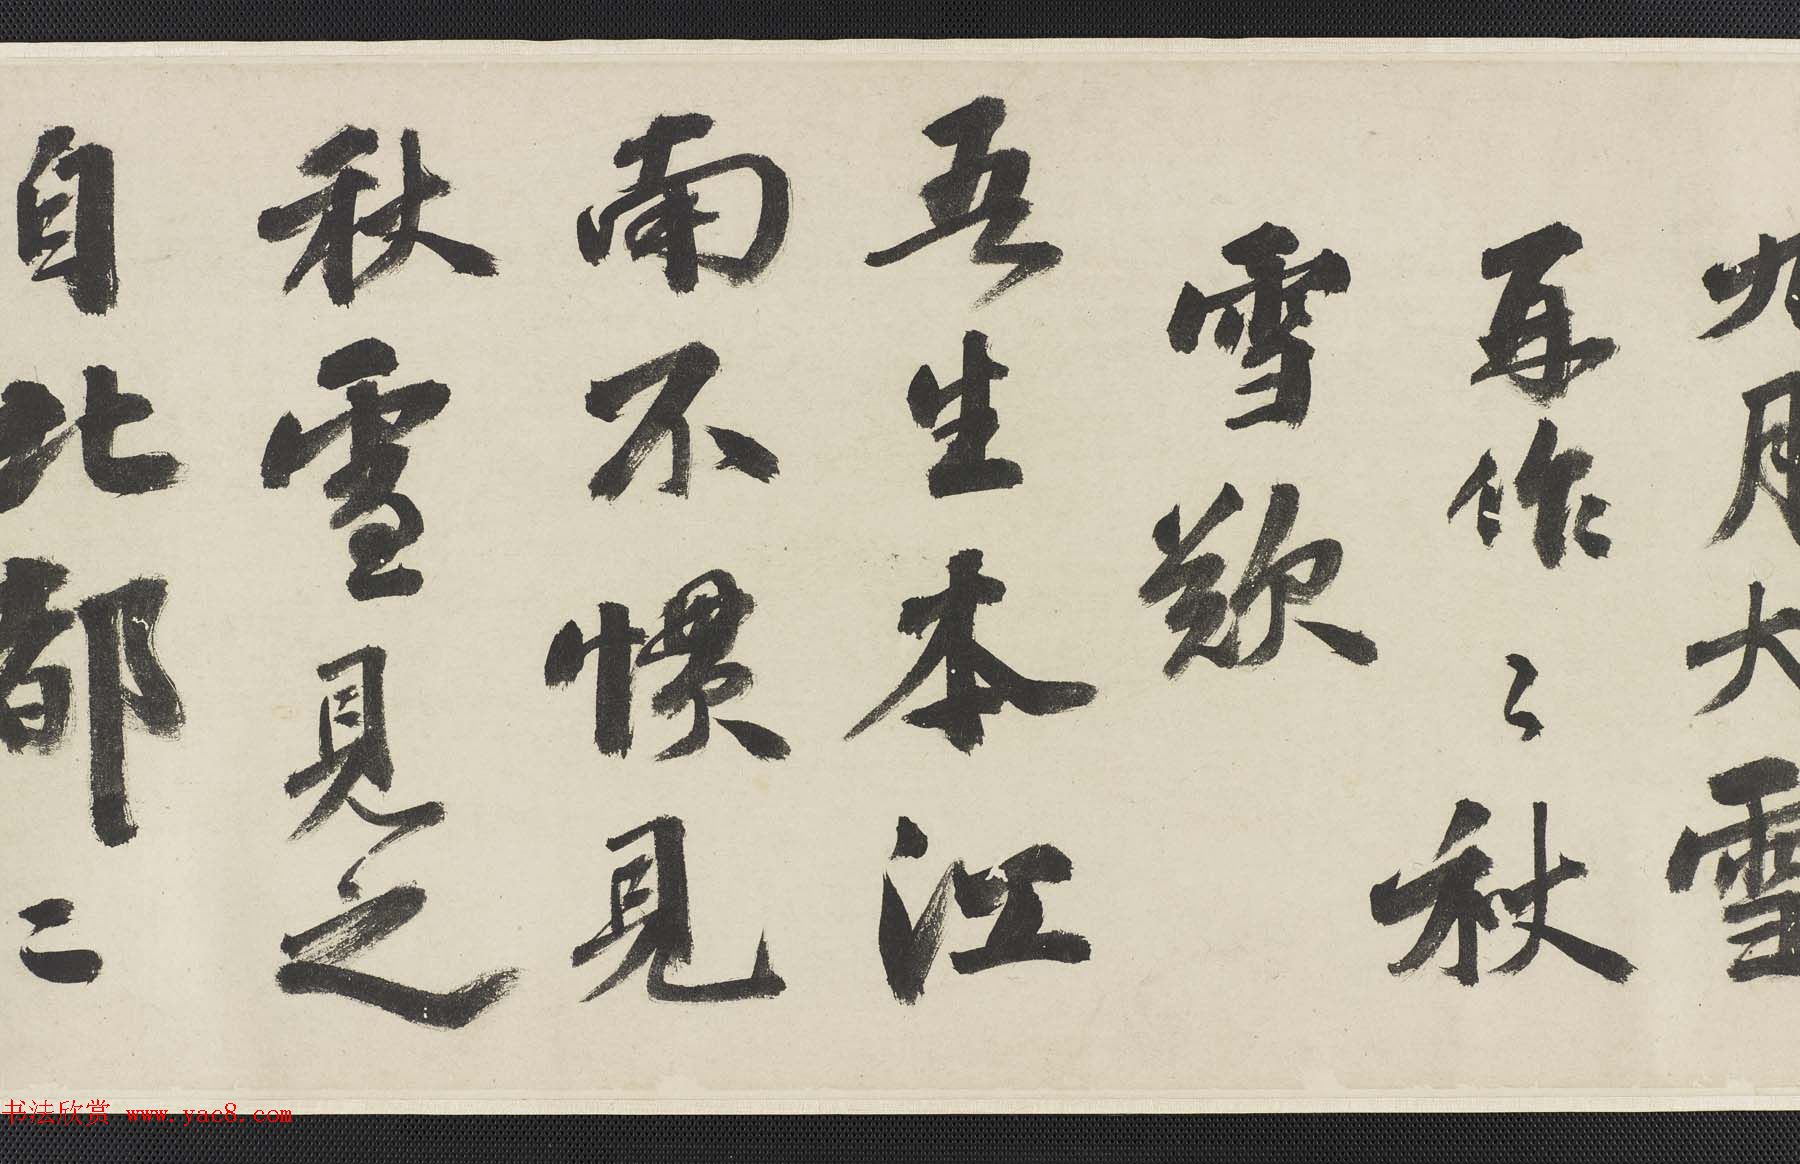 九月大雪
再作〻秋
雪歎
吾生本江
南不慣見
秋雪見之
自北都二
书法欣赏 www.yac8.com